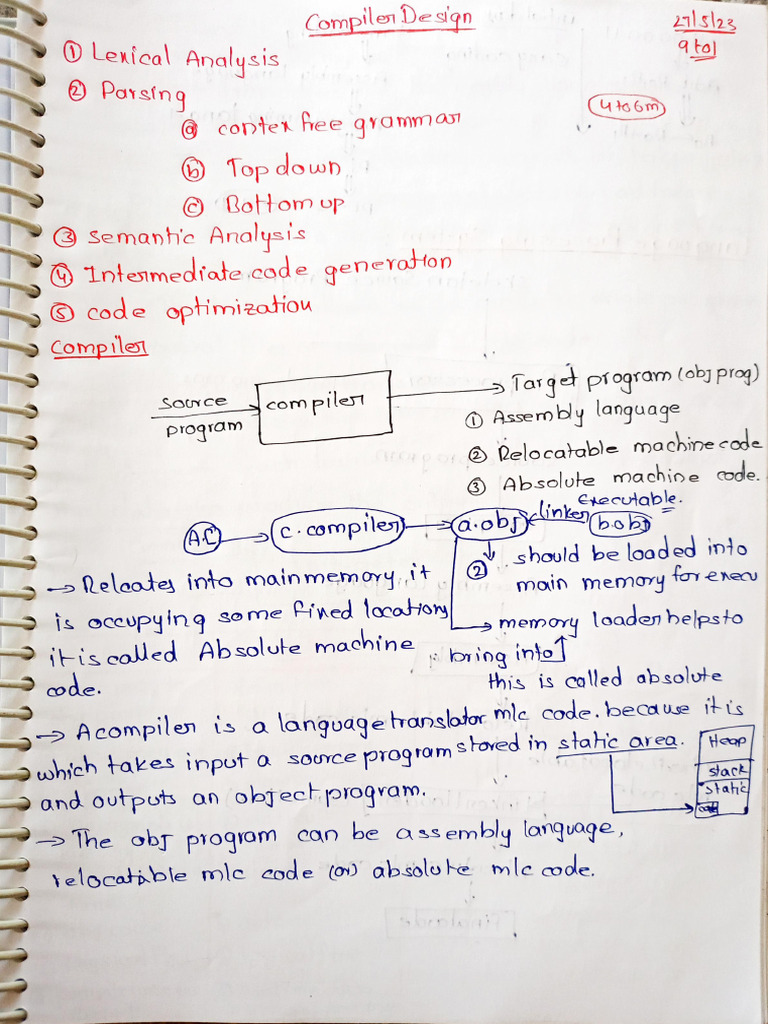 Compiler Design
27/5/23
9 to 1
① Lexical Analysis
② Parsing
4 to 6m
ⓐ contex free grammar
ⓑ Top down
ⓒ Bottom up
③ Semantic Analysis
④ Intermediate code generation
⑤ code optimization
Compiler
source program
compiler
Target program (obj prog)
① Assembly language
② Relocatable machine code
③ Absolute machine code.
executable.
A.C
c.compiler
a.obj
linker
b.obj
② should be loaded into
main memory for execu
→ Relcates into main memory it
is occupying some fixed location,
it is called Absolute machine
code.
→ memory loader helps to
bring into
this is called absolute
mlc code. because it is
stored in static area.
→ A compiler is a language translator
which takes input a source program
and outputs an object program.
Heap
stack
static
→ The obj program can be assembly language,
relocatable mlc code (or) absolute mlc code.